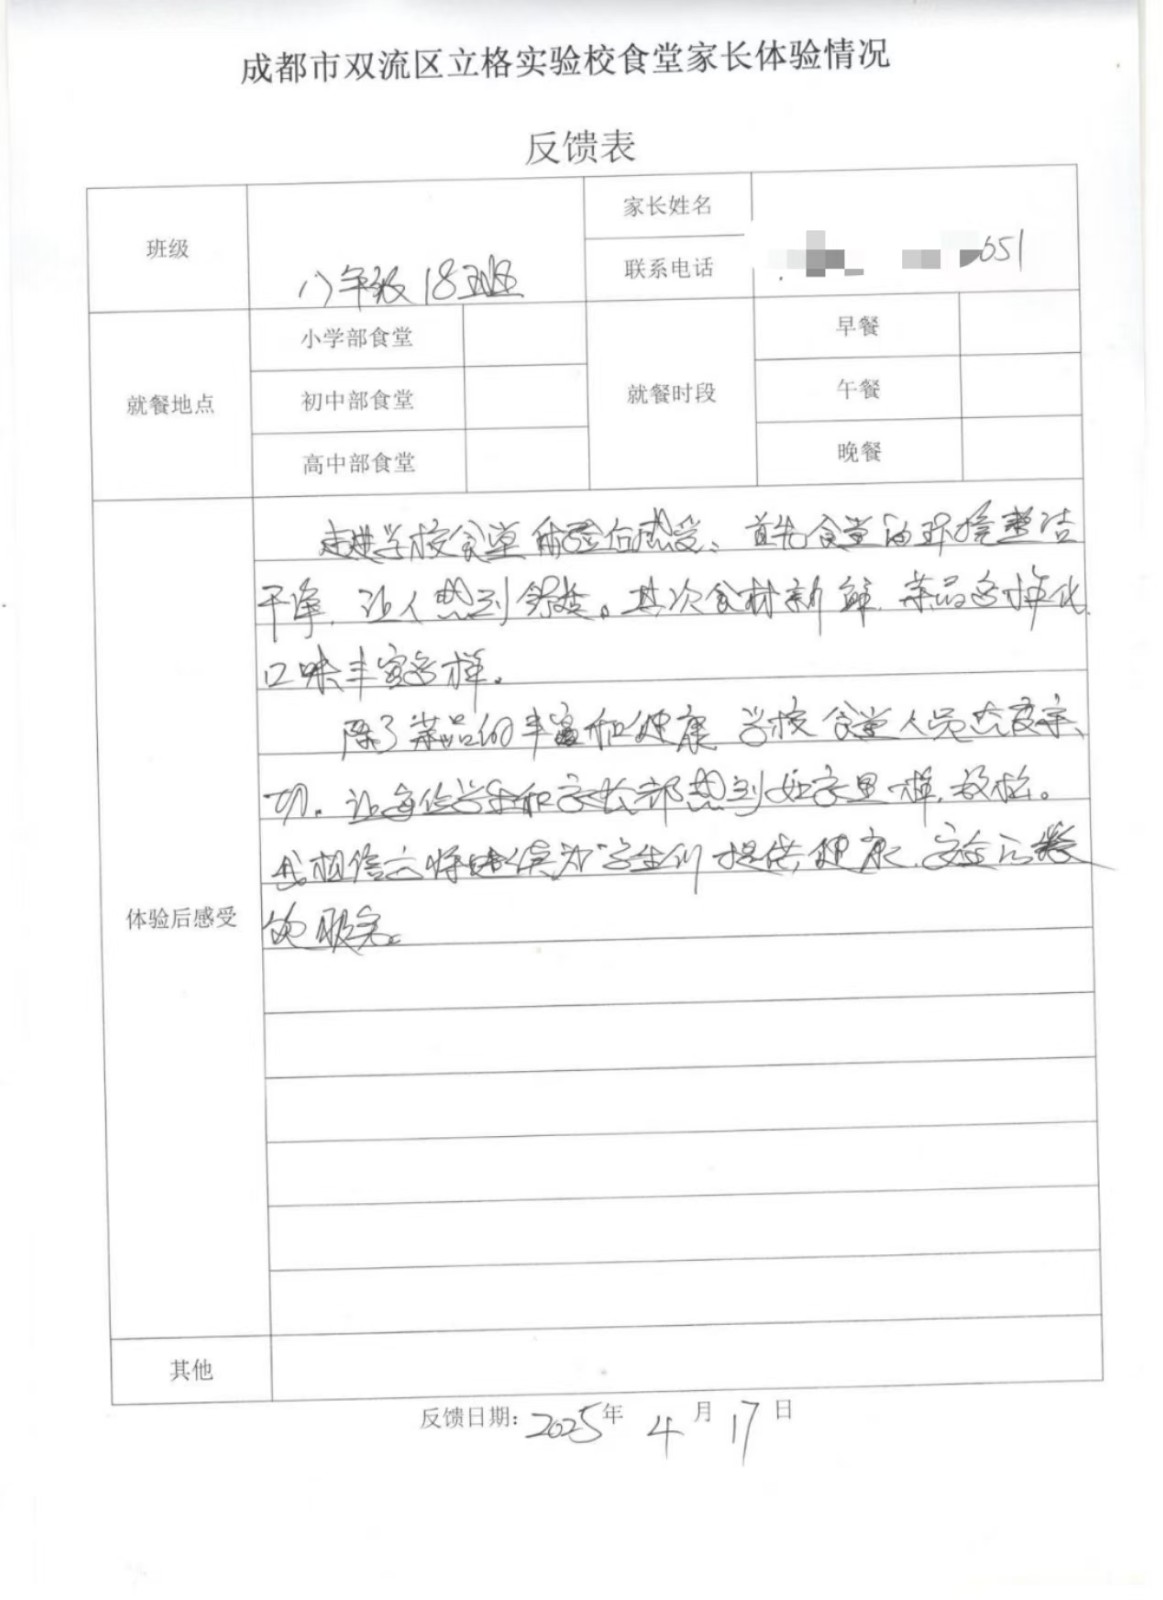 成都市双流区立格实验校食堂家长体验情况
反馈表
班级
八年级18班
家长姓名
联系电话
051
就餐地点
小学部食堂
初中部食堂
高中部食堂
就餐时段
早餐
午餐
晚餐
体验后感受
走进学校食堂体验后感受、首先食堂的环境整洁
干净,让人感到舒适。其次食材新鲜,菜品多样化,
口味丰富多样。
除了菜品的丰富和健康 学校食堂人员态度亲
切,让每位学生和家长都感到如家里一样,放松。
我相信立格继续为学生们提供,健康、安全的餐
饮服务。
其他
反馈日期:2025年4月17日